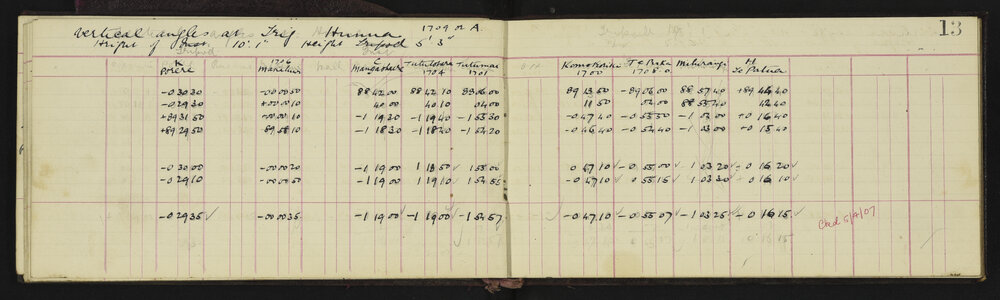 Vertical angles at Trig Humma 1709 or A. 13
Height of Inst. 10' 1" Height Tripod 5' 3"
K C H
Porere 1706 Mangashure Tututohara Tutumai Komokoriki Te Puka Mihirangi Te Patua
1704 1701 1700 1708
-0 30 30 -00 00 50 88 42 00 88 42 10 88 06 00 89 13 50 -89 06 00 88 57 40 +89 44 40
-0 29 30 +00 00 10 40 00 40 10 04 00 11 50 04 00 88 55 40 42 40
+89 31 50 +00 00 10 -1 19 30 -1 19 40 -1 55 30 -0 47 40 -0 55 50 -1 03 00 +0 16 40
+89 29 50 89 58 10 -1 18 30 -1 18 40 -1 54 20 -0 46 40 -0 54 40 -1 03 00 +0 15 40
-0 30 00 -00 00 20 -1 19 00 1 18 50 1 55 00 0 47 10 -0 55 00 -1 03 20 -0 16 20
-0 29 10 -00 00 50 -1 19 00 1 19 10 1 54 55 -0 47 10 0 55 15 -1 03 30 -0 16 10
-0 29 35 -00 00 35 -1 19 00 -1 19 00 -1 54 57 -0 47 10 -0 55 07 -1 03 25 -0 16 15
Ckd 5/4/07